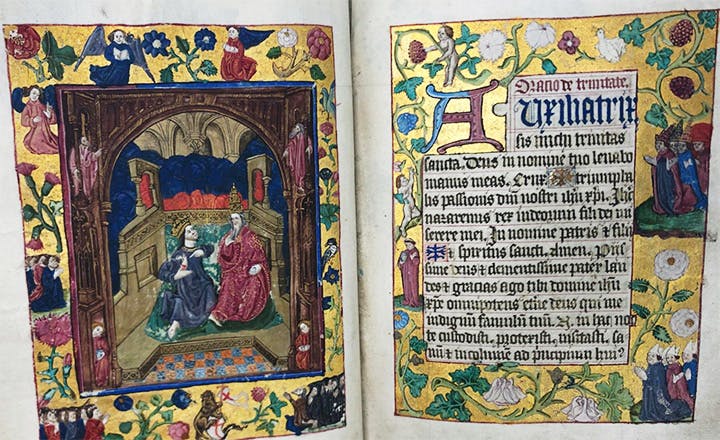 Oratio de trinitate.
Auxiliatrix
sis michi trinitas
sancta. Deus in nomine tuo levabo
manus meas. Crux triumpha
lis passionis dni nostri ihu xpi. Ihu
nazarenus rex iudeorum fili dei mi
serere mei. In nomine patris & filij
& spiritus sancti. Amen. Piis
sime deus & clementissime pater lau
des & gracias ago tibi domine ihu
xpe omnipotens eterne deus qui me
indignum famulum tuum. N. in hac noc
te custodisti, protexisti, visitasti, sa
num & incolume ad principium